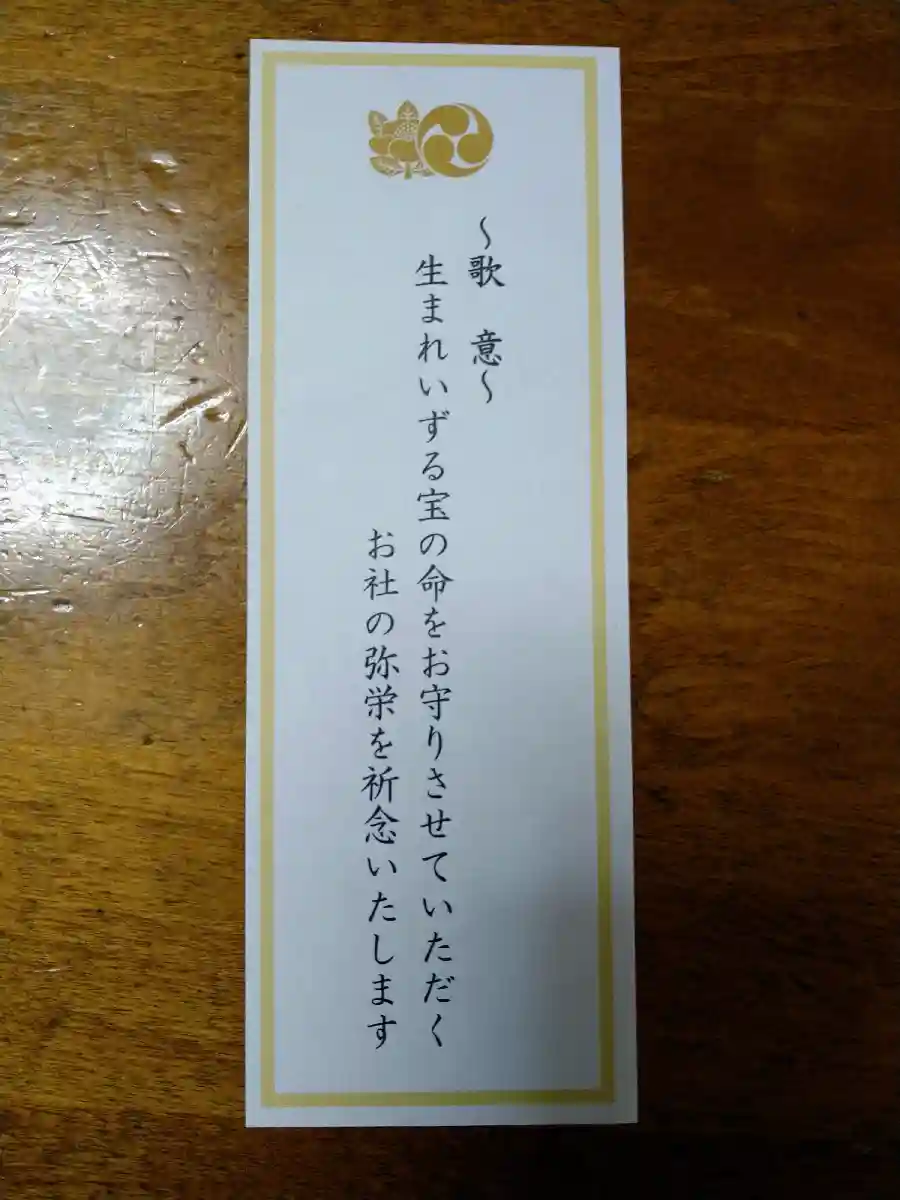 ～歌　意～
生まれいずる宝の命をお守りさせていただく
お社の弥栄を祈念いたします